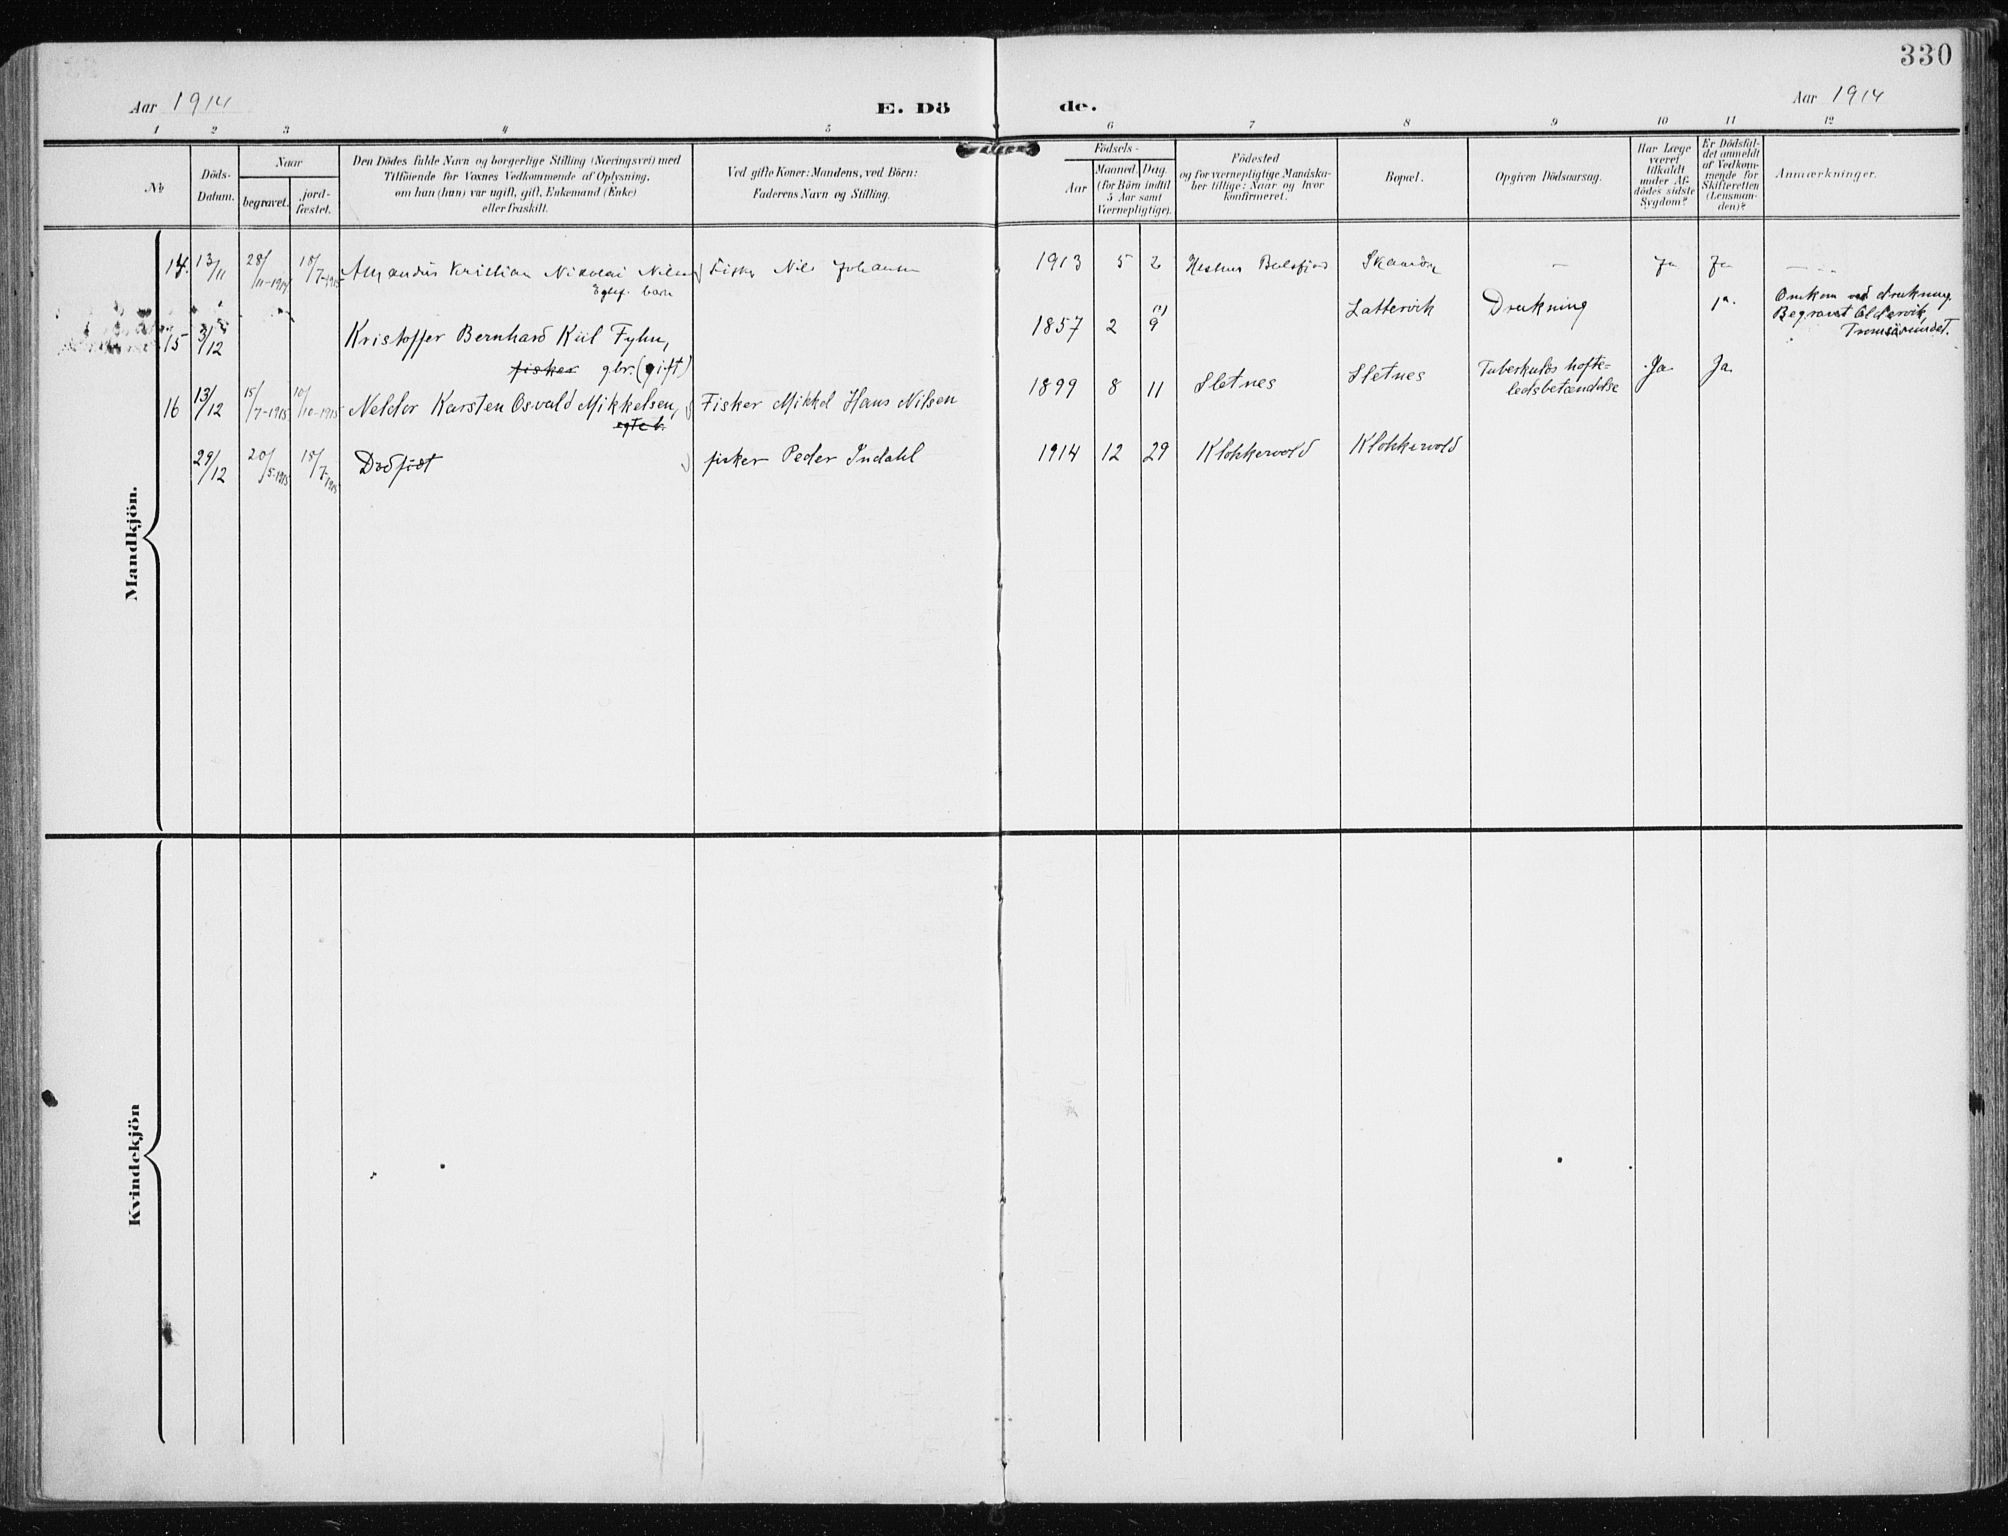 330
Aar 1914
E. Dö
de.
Aar 1914
1 2 3 4 5 6 7 8 9 10 11 12
No
Döds-
Datum.
Naar
begravet.
jord-
fæstet.
Den Dödes fulde Navn og borgerlige Stilling (Næringsvei) med
Tilföiende for Voxnes Vedkommende af Oplysning,
om han (hun) var ugift, gift, Enkemand (Enke)
eller fraskilt.
Ved gifte Koner: Mandens, ved Börn:
Faderens Navn og Stilling.
Födsels-
Aar
Maaned. Dag.
(for Börn indtil
5 Aar samt
Værnepligtige).
Födested
og for værnepligtige Mandska-
ber tillige: Naar og hvor
konfirmeret.
Bopæl.
Opgiven Dödsaarsag.
Har Læge
været
tilkaldt
under Af-
dödes sidste
Sygdom?
Er Dödsfal-
det anmeldt
af Vedkom-
mende for
Skifteretten
(Lensman-
den)?
Anmærkninger.
Mandkjön.
14. 13/11 28/11-1914 18/7-1915 Amandus Kristian Nikolai Nilsen Fisker Nils Johansen 1913 5 2 Balsfjord — Ja Ja
barn
15 3/12 Kristoffer Bernhard Kiil Fyhn, 1857 2 9 Lattervik Drukning Ja. Omkom ved drukning.
Begravet Oldervik,
Tromsösundet.
fisker gbr. (gift)
16 13/12 15/7-1915 10/10-1915 Neldor Karsten Osvald Mikkelsen, Fisker Mikkel Hans Nilsen 1899 8 11 Sletnes Sletnes Tuberkuløs hofte= Ja Ja
ledsbetændelse
egte b.
29/12 20/5-1915 18/7-1915 Dødfødt fisker Peder Indahl 1914 12 29 Klokkervold Klokkervold
Kvindekjön